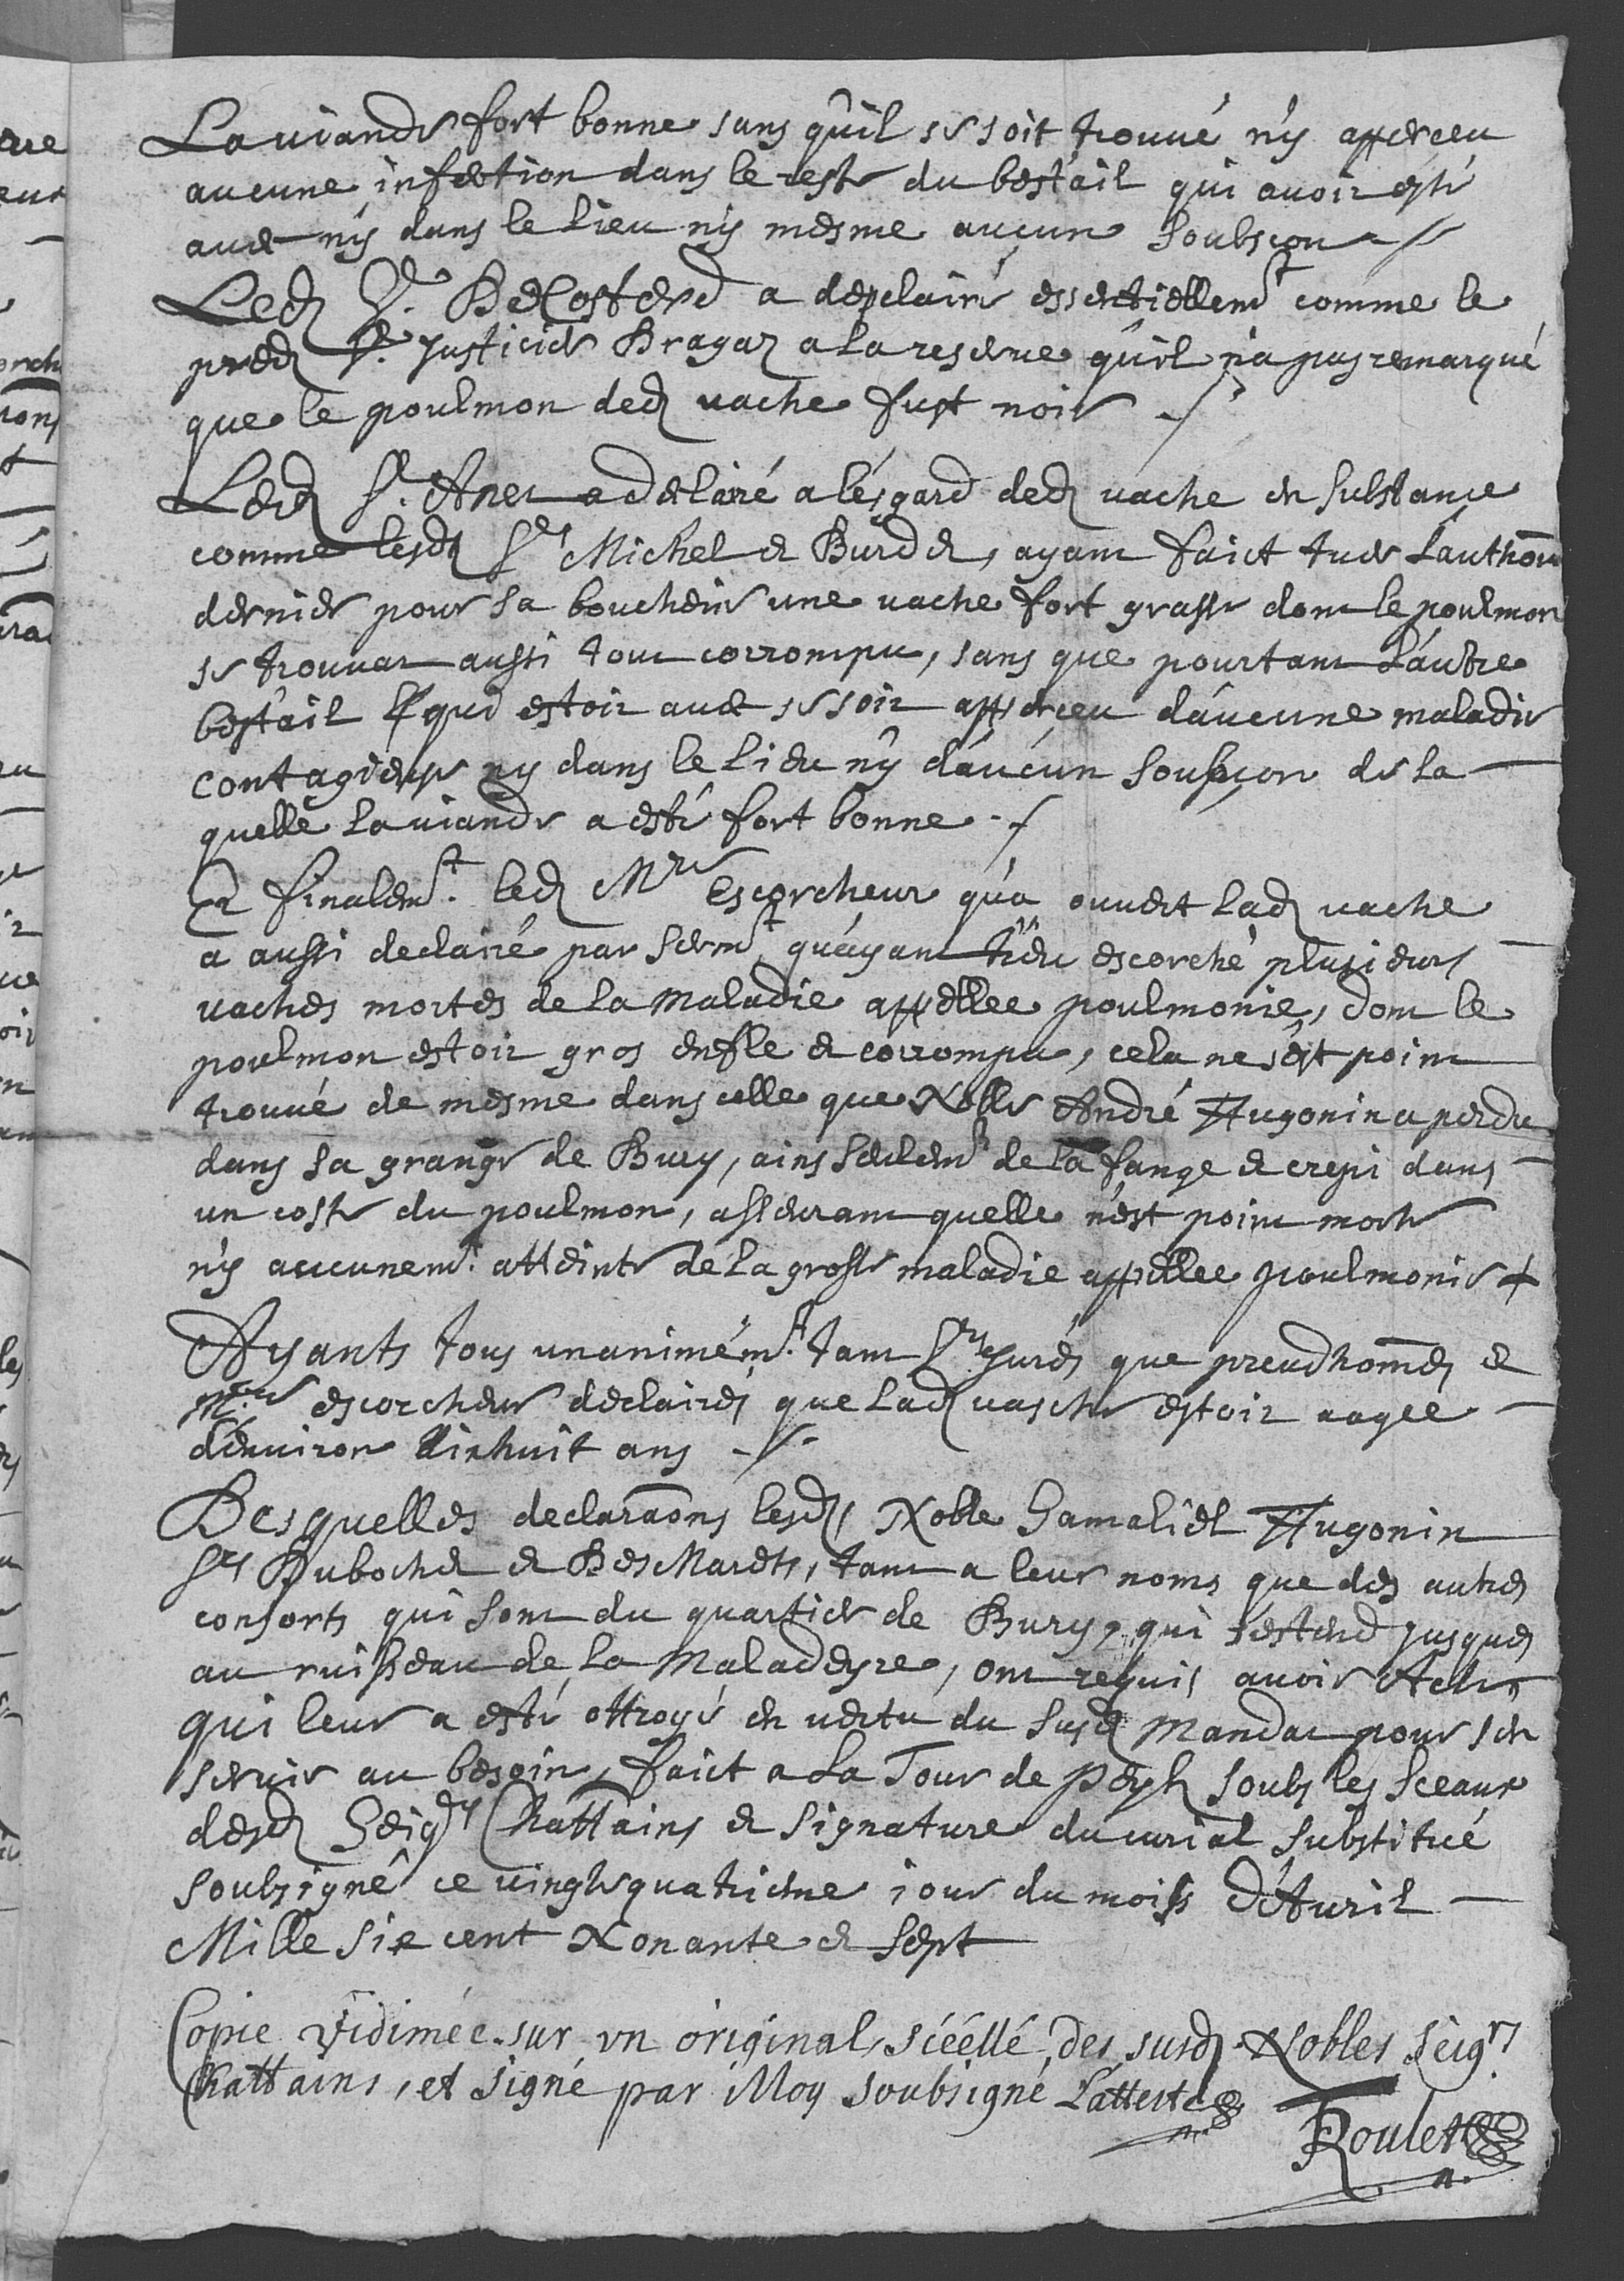 La viande fort bonne sans qu'il se soit trouvé n'y apperceu
aucune infection dans le reste du bestail qui avoit esté
avec n'y dans le lieu n'y mesme aucun soubscon
Led. Sr. DeCosterd a declairé essentiellemt comme le
pred. Sr. Justicier Bragaz a la reserve qu'il n'a pas remarqué
que le poulmon ded. vache fust noir
Led. Sr. Anet a declairé a l'esgard ded. vache en substance
comme lesd. Srs Michel et Burdet, ayant faict tuer l'authom̄
dernier pour sa boucherie une vache fort grasse dont le poulmon
se trouvat aussi tout corrompu, sans que pourtant l'autre
bestail qui estoit avec se soit apperceu d'aucune maladie
contagieuse ny dans le lieu n'y d'aucun soubçon de la
quelle la viande a esté fort bonne
Et finalemt. led. Mre Escorcheur qu'a ouvert lad. vache
a aussi declairé par sermt. qu'ayant escorché plusieurs
vaches mortes de la maladie appellee poulmonie, dont le
poulmon estoit gros enflé et corrompu, cela ne s'est point
trouvé de mesme dans celle que Noble André Hugonin a perdu
dans sa grange de Burey, ains seulemt de la fange et crepi dans
un costé du poulmon, asseurant quelle n'est point morte
n'y aucunemt. atteinte de la grosse maladie appellee poulmonie
Ayants tous unanimémt. tant Srs Jurés que preudhom̄es et
Mre escorcheur declairés que lad. vasche estoit aagee
d'environ dixhuit ans
Desquelles declaraōns lesd. Noble Gamaliel Hugonin
Srs Dubochet et DesMarets, tant a leur noms que des autres
consorts qui sont du quartier de Burey, qui s'estend jusques
au ruisseau de la Maladeyre, ont requis avoir Acte
qui leur a esté ottroyé en vertu du susd. mandat pour s'en
servir au besoin, faict a La Tour de Peylz soubs les sceaux
desd. Seigrs Chattains et signature du curial substitué
soubsigné ce vingtequatrieme jour du mois d'Avril
Mille six cent Nonante et sept
Copie vidimée sur vn original scéellé des susd. Nobles Seigrs
Chattains, et signé par Moy soubsigné l'atteste
FRoulet